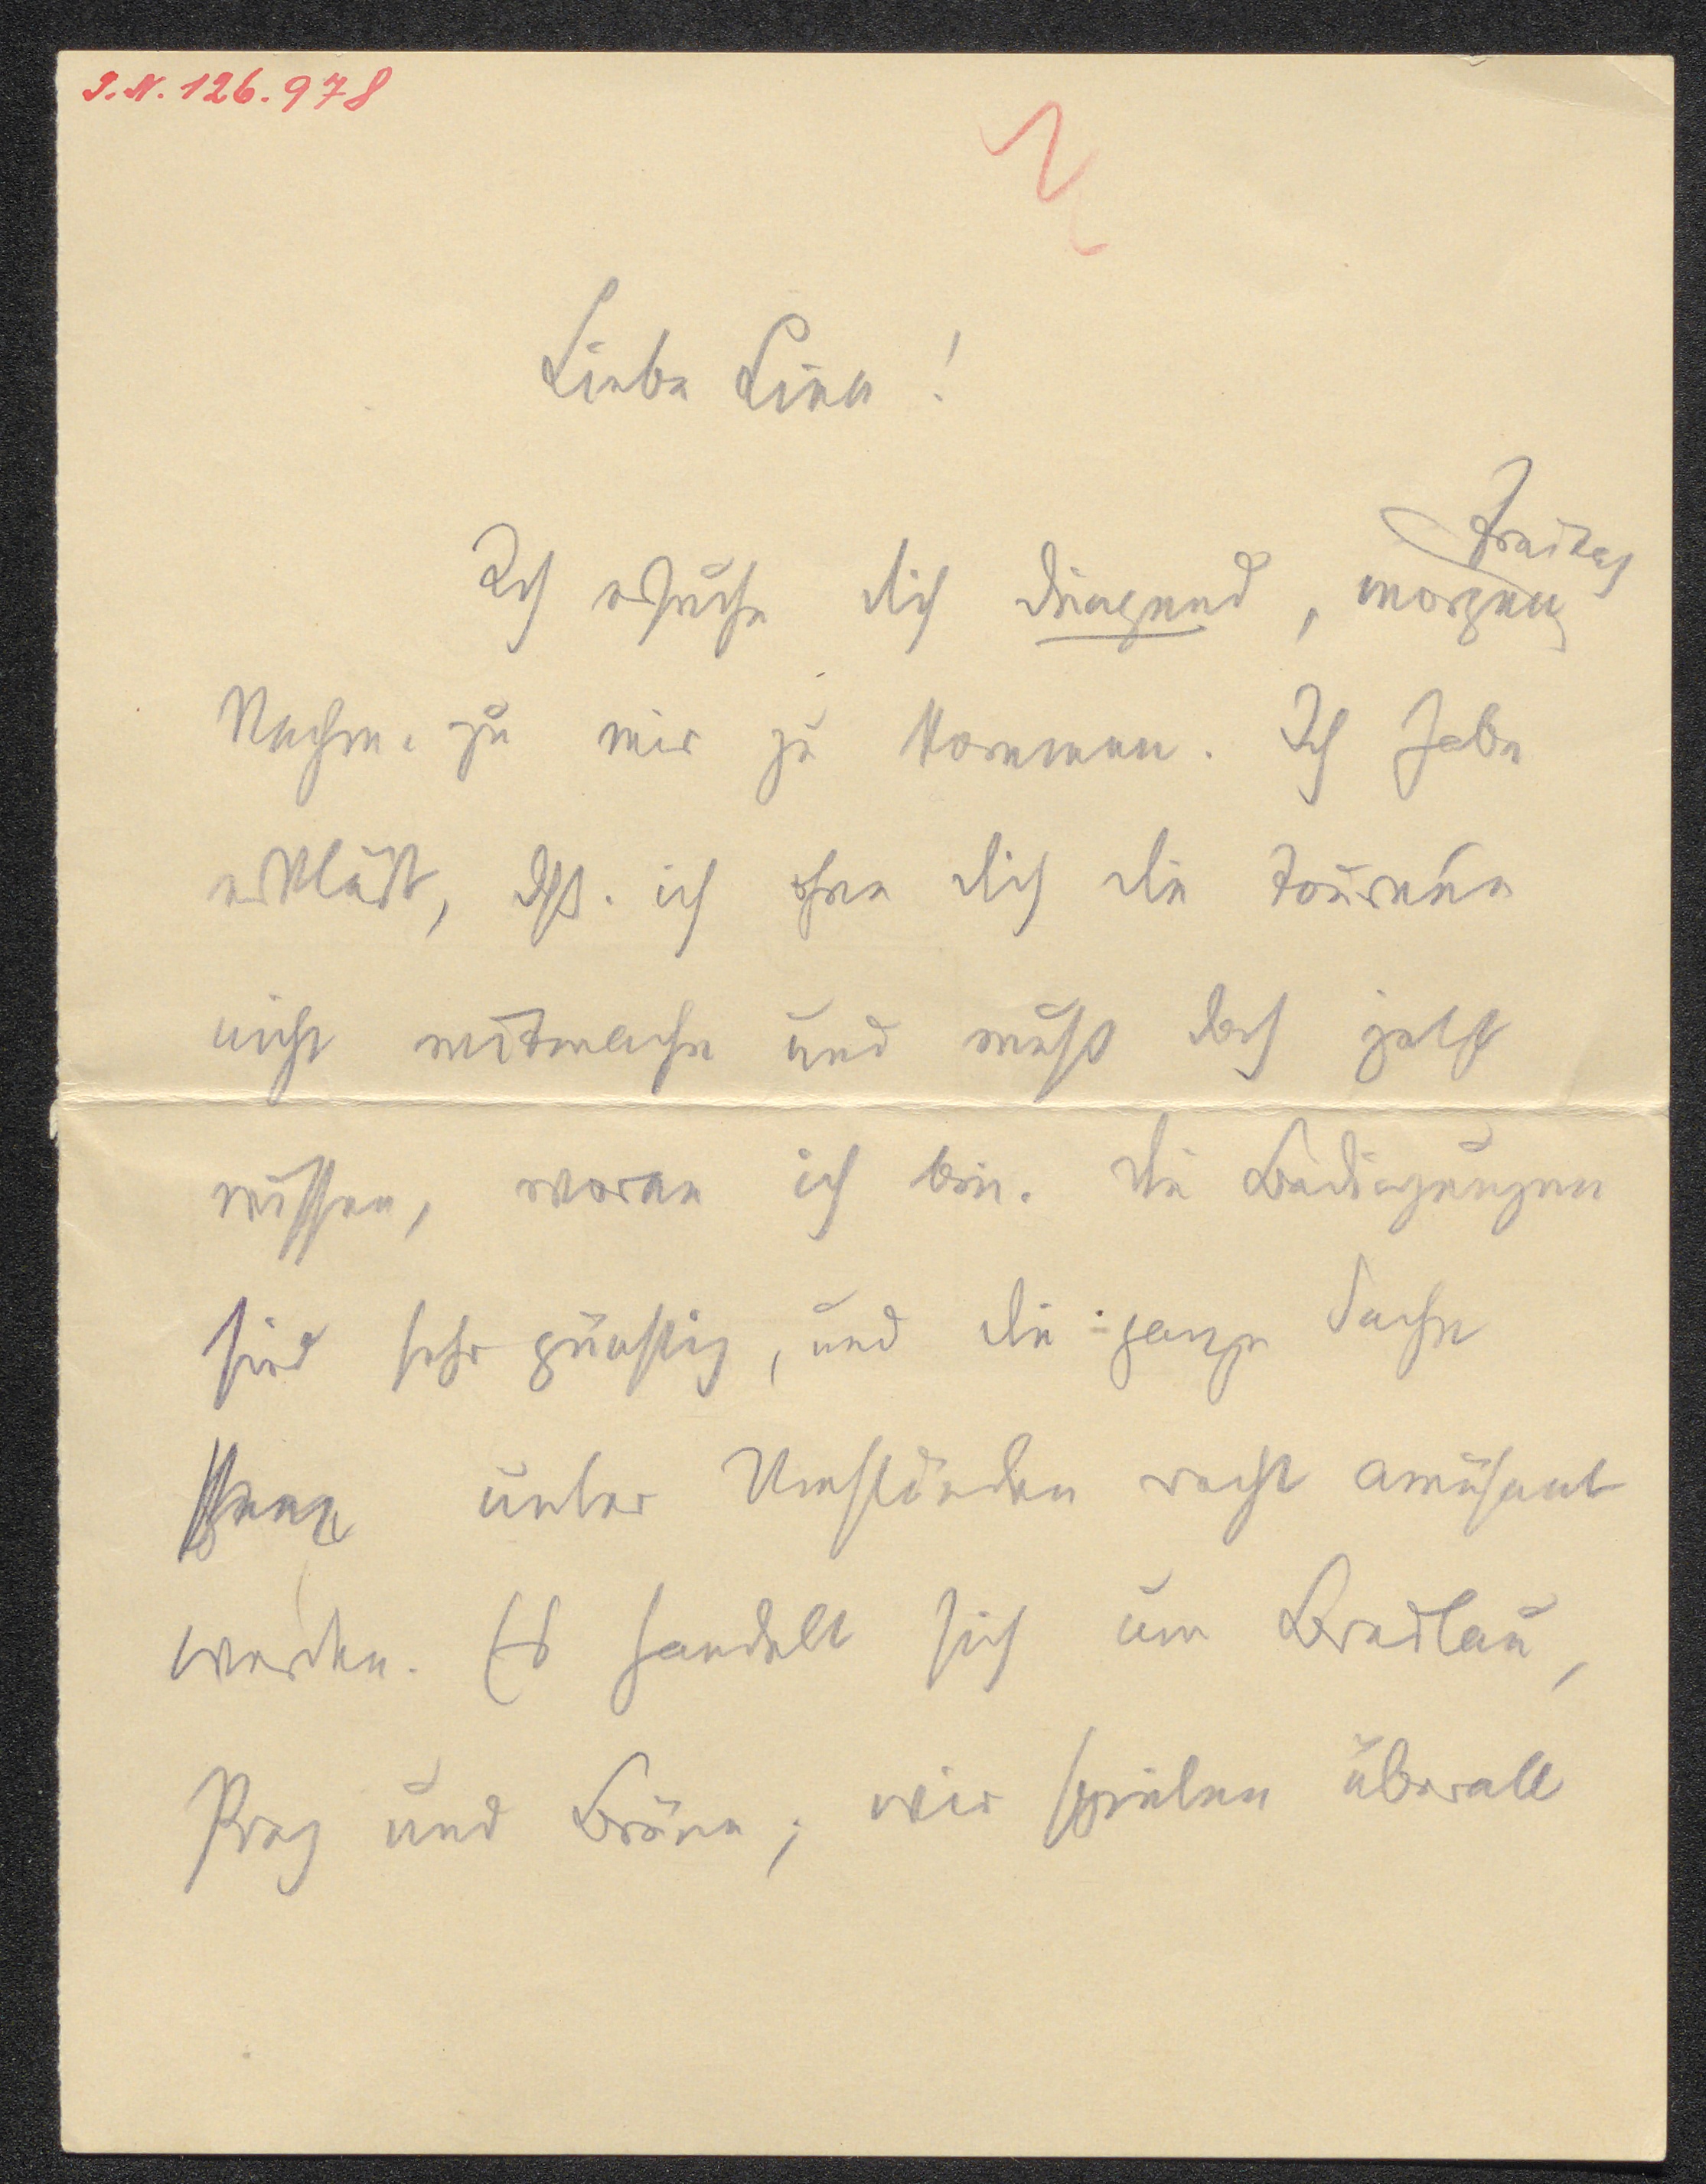 I.N. 126.978
Liebe Lina!
Freitag
Ich ersuche dich dringend, morgen
Nachm. zu mir zu kommen. Ich habe
erklärt, dss. ich ohne dich die Tournée
nicht mitmache und muß doch jetzt
wissen, woran ich bin. Die Bedingungen
sind sehr günstig, und die ganze Sache
kann unter Umständen recht amüsant
werden. Es handelt sich um Breslau,
Prag und Brünn; wir spielen überall